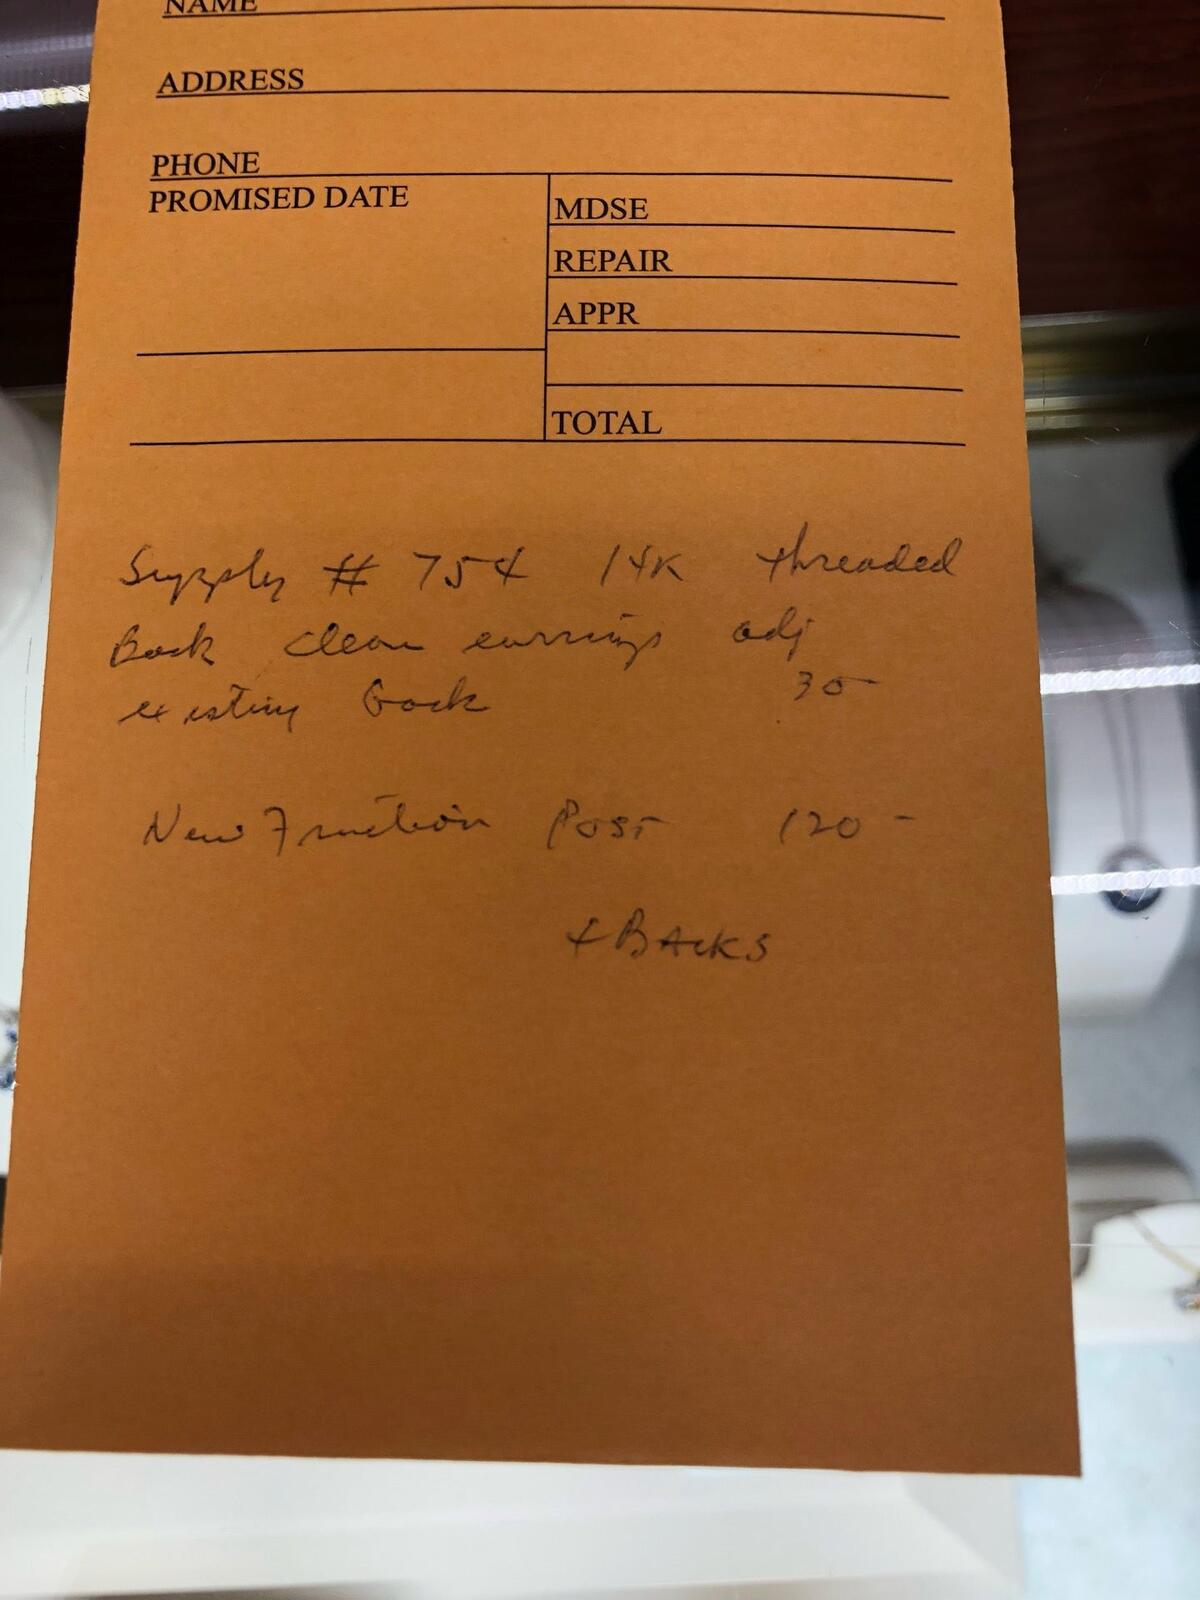 NAME
ADDRESS
PHONE
PROMISED DATE
MDSE
REPAIR
APPR
TOTAL
Supply # 754 14K threaded
Back clean earrings adj
existing back 30-
New Friction Post 120 -
+ BACKS